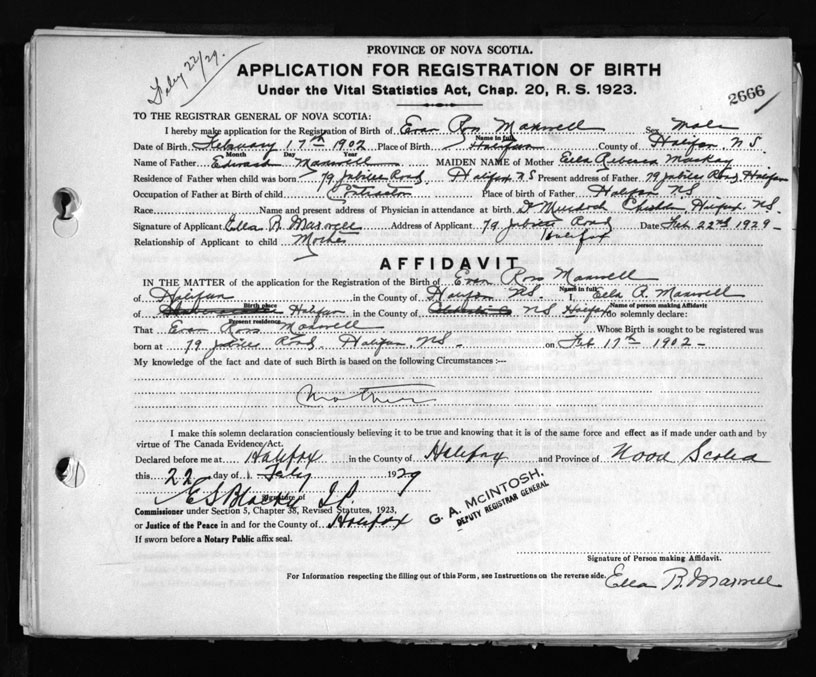 Feby 22/29.
PROVINCE OF NOVA SCOTIA.
APPLICATION FOR REGISTRATION OF BIRTH
Under the Vital Statistics Act, Chap. 20, R. S. 1923.
2666
TO THE REGISTRAR GENERAL OF NOVA SCOTIA:
I hereby make application for the Registration of Birth of Evan Ross Maxwell Sex Male
Name in full
Date of Birth February 17th 1902 Place of Birth Halifax County of Halifax N.S.
Month Day Year
Name of Father Edward Maxwell MAIDEN NAME of Mother Ella Rebecca Mackay
Residence of Father when child was born 79 Jubilee Road, Halifax N.S Present address of Father 79 Jubilee Road, Halifax
Occupation of Father at Birth of child Contractor Place of birth of Father Halifax NS
Race Name and present address of Physician in attendance at birth Dr Murdoch Chisholm, Halifax, NS.
Signature of Applicant Ella R Maxwell Address of Applicant 79 Jubilee Road Date Feb 22nd 1929-
Halifax
Relationship of Applicant to child Mother
AFFIDAVIT
IN THE MATTER of the application for the Registration of the Birth of Evan Ross Maxwell
Name in full
of Halifax in the County of Halifax NS. I, Ella R. Maxwell
Birth place Name of person making Affidavit
of Halifax in the County of NS Halifax do solemnly declare:
Present residence
That Evan Ross Maxwell Whose Birth is sought to be registered was
born at 79 Jubilee Road, Halifax, NS. on Feb 17th 1902-
My knowledge of the fact and date of such Birth is based on the following Circumstances :—
Mother
I make this solemn declaration conscientiously believing it to be true and knowing that it is of the same force and effect as if made under oath and by
virtue of The Canada Evidence Act.
Declared before me at Halifax in the County of Halifax and Province of Nova Scotia
this 22 day of Feby 1929
Signature of
Commissioner under Section 5, Chapter 38, Revised Statutes, 1923,
or Justice of the Peace in and for the County of Halifax
If sworn before a Notary Public affix seal.
G. A. McINTOSH.
DEPUTY REGISTRAR GENERAL
Signature of Person making Affidavit.
For Information respecting the filling out of this Form, see Instructions on the reverse side.
Ella R. Maxwell